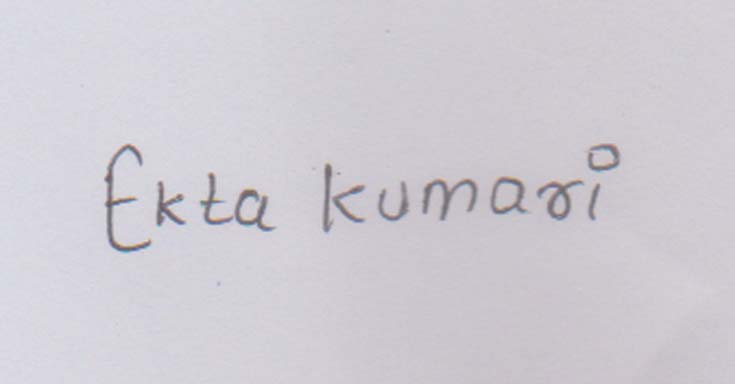 Ekta kumari